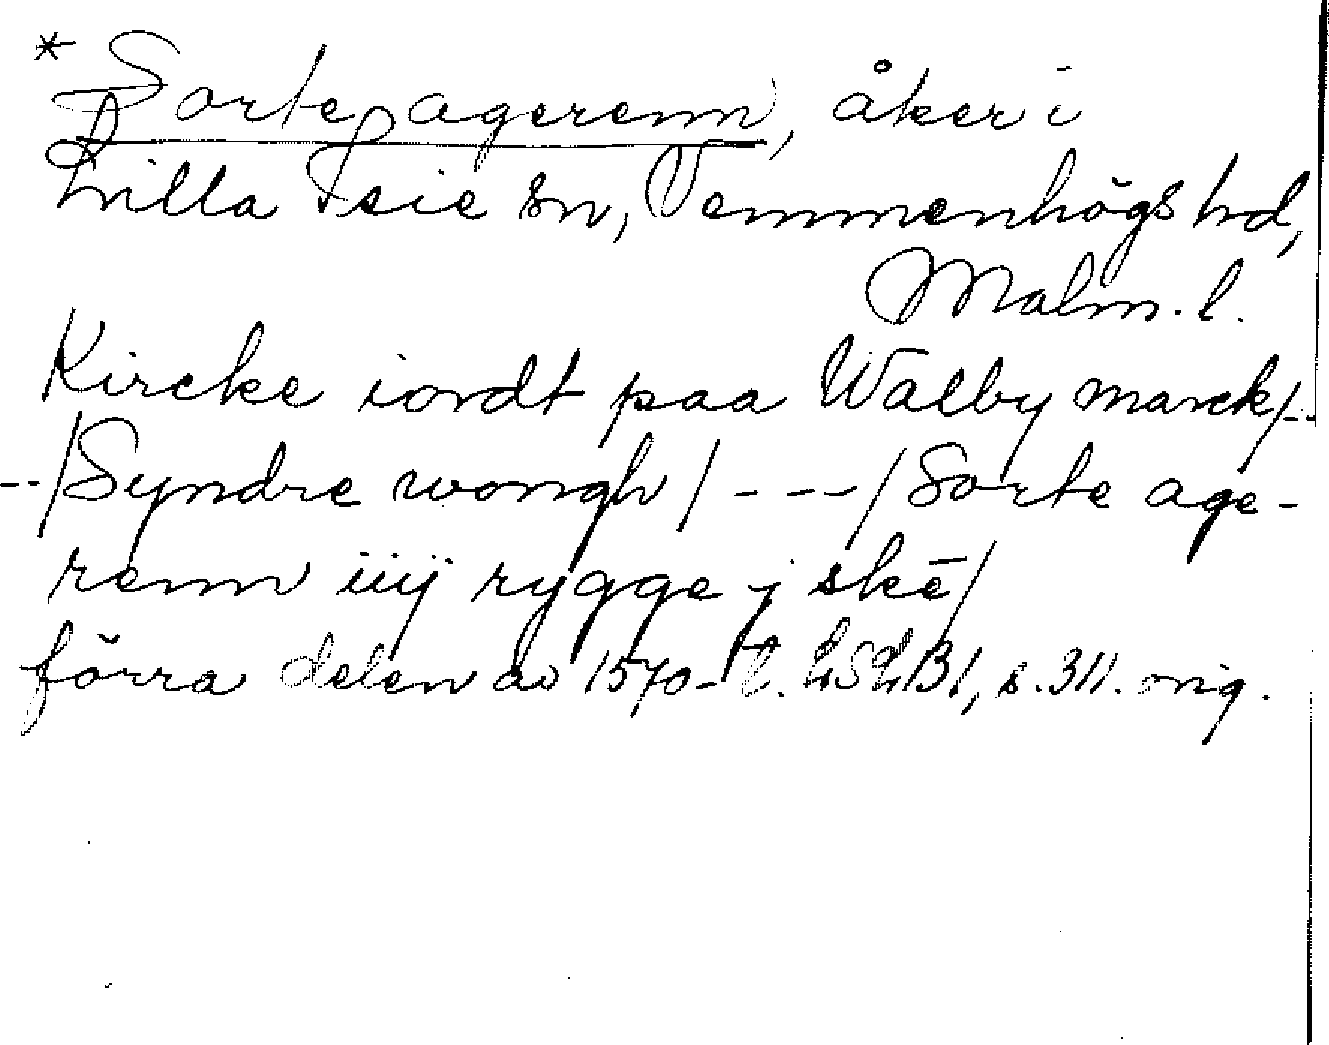 * Sorte agerenn, åker i
Lilla Isie sn, Vemmenhögs hd,
Malm. l.
Kircke iordt paa Walby marck/--
--/Syndre wongh/ ---/Sorte age-
renn iiij rygge j skē/
förra delen av 1570-t. LSLB1, s. 311. orig.